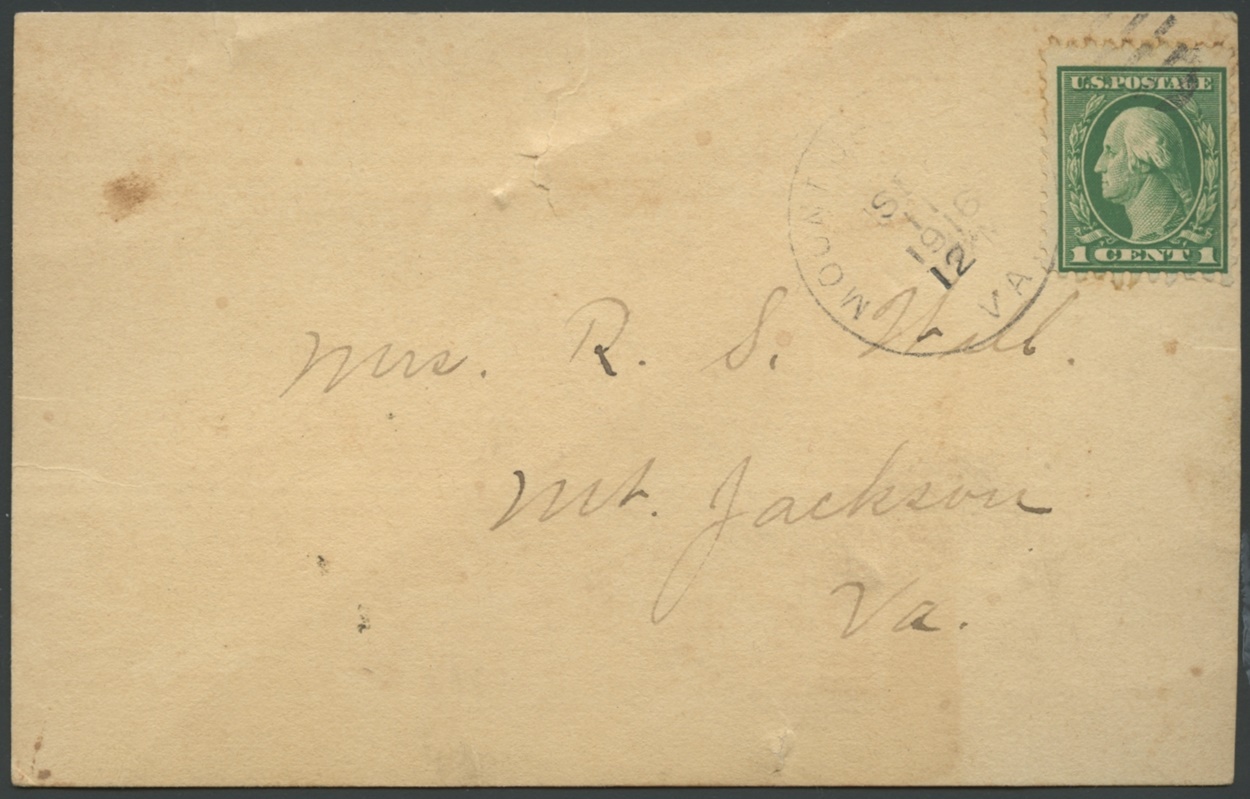 U.S. POSTAGE
1 CENT 1
MOUNT
VA.
1916
12
Mrs. R. S.
Mt. Jackson
Va.